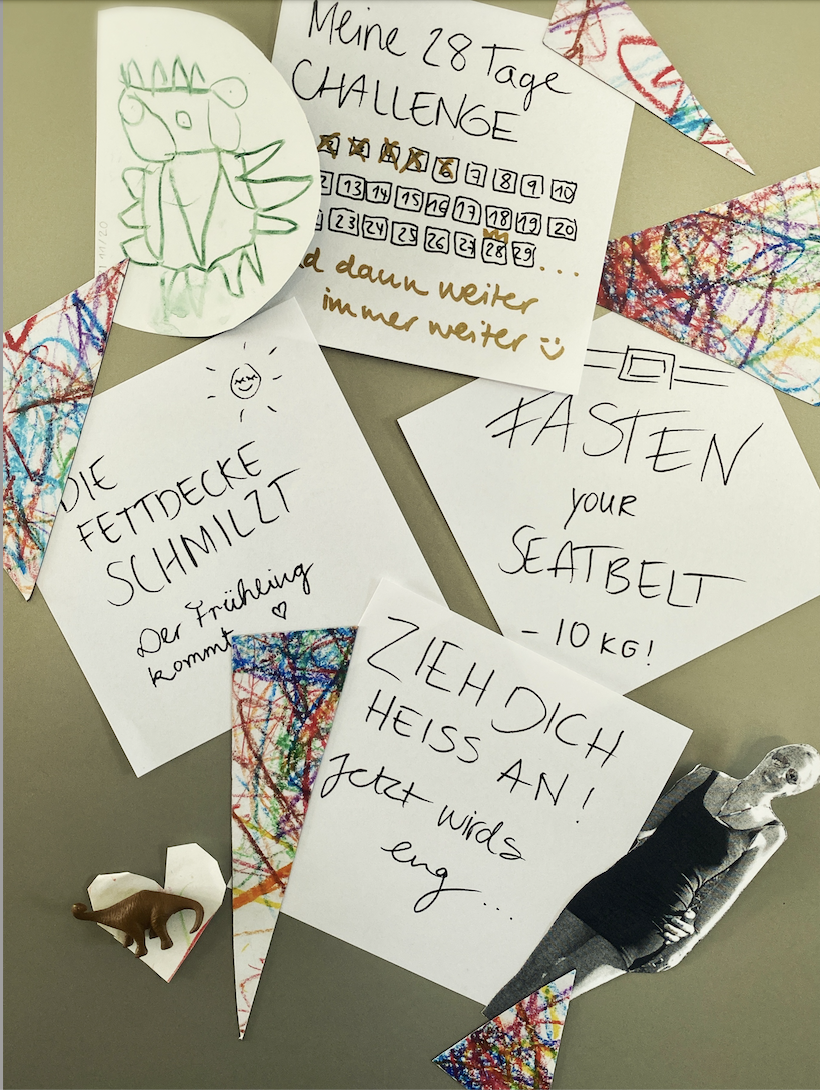 Meine 28 Tage
CHALLENGE
6 7 8 9 10
13 14 15 16 17 18 19 20
23 24 25 26 27 28 29 ...
dann weiter
immer weiter :)
11/20
DIE
FETTDECKE
SCHMILZT
Der Frühling
kommt ♡
FASTEN
YOUR
SEATBELT
- 10 KG!
ZIEH DICH
HEISS AN!
Jetzt wirds
eng...